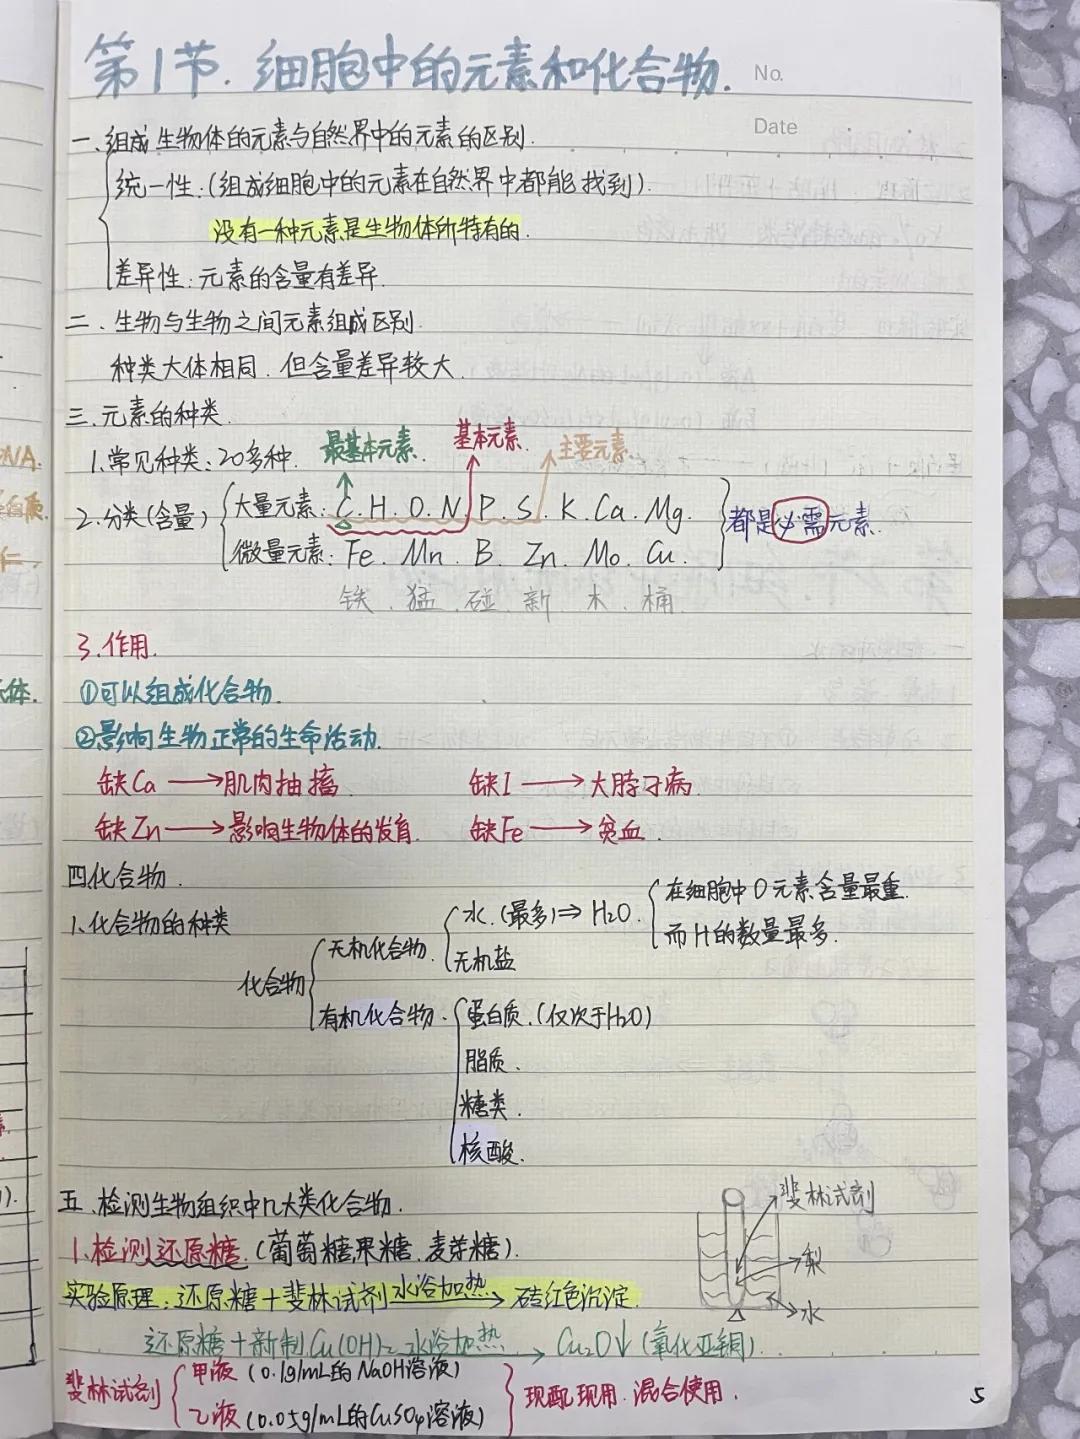 第1节.细胞中的元素和化合物.
No.
Date
一、组成生物体的元素与自然界中的元素的区别.
统一性:(组成细胞中的元素在自然界中都能找到).
没有一种元素是生物体所特有的.
差异性:元素的含量有差异.
二、生物与生物之间元素组成区别.
种类大体相同.但含量差异较大.
三、元素的种类.
1.常见种类:20多种.
最基本元素.
基本元素.
主要元素.
2.分类(含量)
大量元素:C.H.O.N.P.S.K.Ca.Mg.
微量元素:Fe.Mn.B.Zn.Mo.Cu.
都是必需元素.
铁.猛.碰.新.木.桶
3.作用.
①可以组成化合物.
②影响生物正常的生命活动.
缺Ca→肌肉抽搐. 缺I→大脖子病.
缺Zn→影响生物体的发育. 缺Fe→贫血.
四.化合物.
1.化合物的种类
化合物
无机化合物.
水.(最多)⇒H2O.
在细胞中O元素含量最重.
而H的数量最多.
无机盐
有机化合物.
蛋白质.(仅次于H2O)
脂质.
糖类.
核酸.
五.检测生物组织中几大类化合物.
1.检测还原糖.(葡萄糖.果糖.麦芽糖).
斐林试剂
梨
水
实验原理:还原糖+斐林试剂 水浴加热→砖红色沉淀.
还原糖+新制Cu(OH)2 水浴加热→Cu2O↓(氧化亚铜).
斐林试剂
甲液(0.1g/mL的NaOH溶液)
乙液(0.05g/mL的CuSO4溶液)
现配现用.混合使用.
5